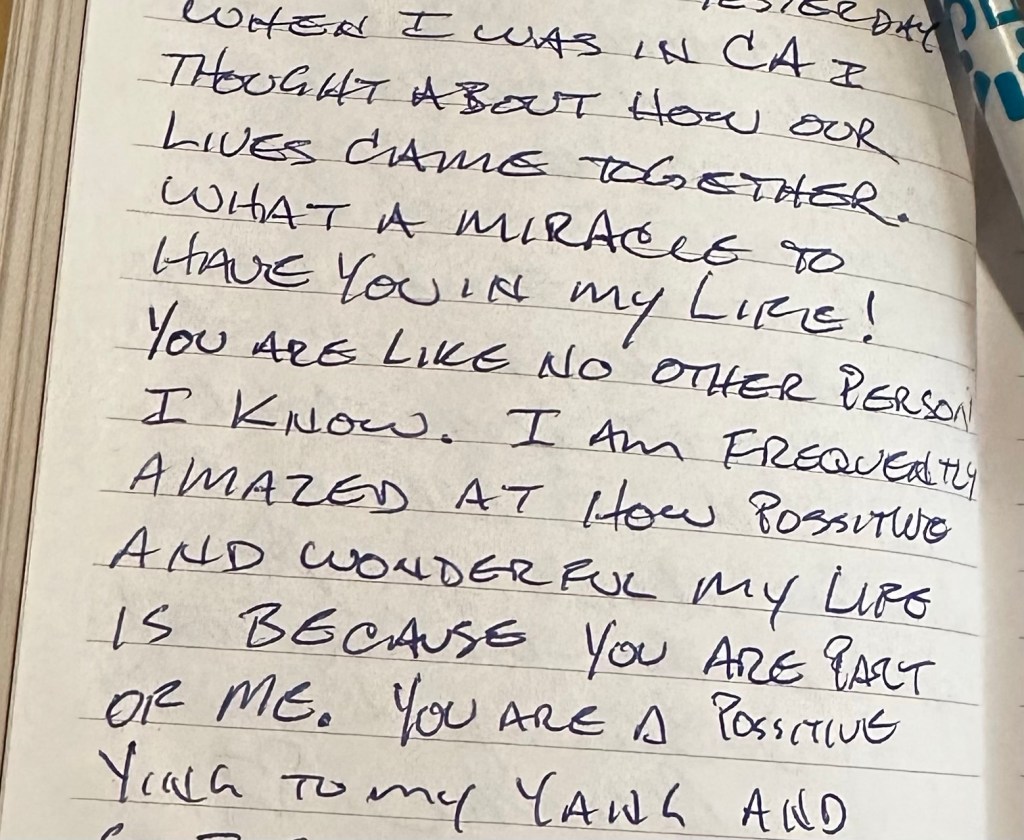 YESTERDAY
WHEN I WAS IN CA I
THOUGHT ABOUT HOW OUR
LIVES CAME TOGETHER.
WHAT A MIRACLE TO
HAVE YOU IN MY LIFE!
YOU ARE LIKE NO OTHER PERSON
I KNOW. I AM FREQUENTLY
AMAZED AT HOW POSSITIVE
AND WONDERFUL MY LIFE
IS BECAUSE YOU ARE PART
OF ME. YOU ARE A POSSITIVE
YING TO MY YANG AND